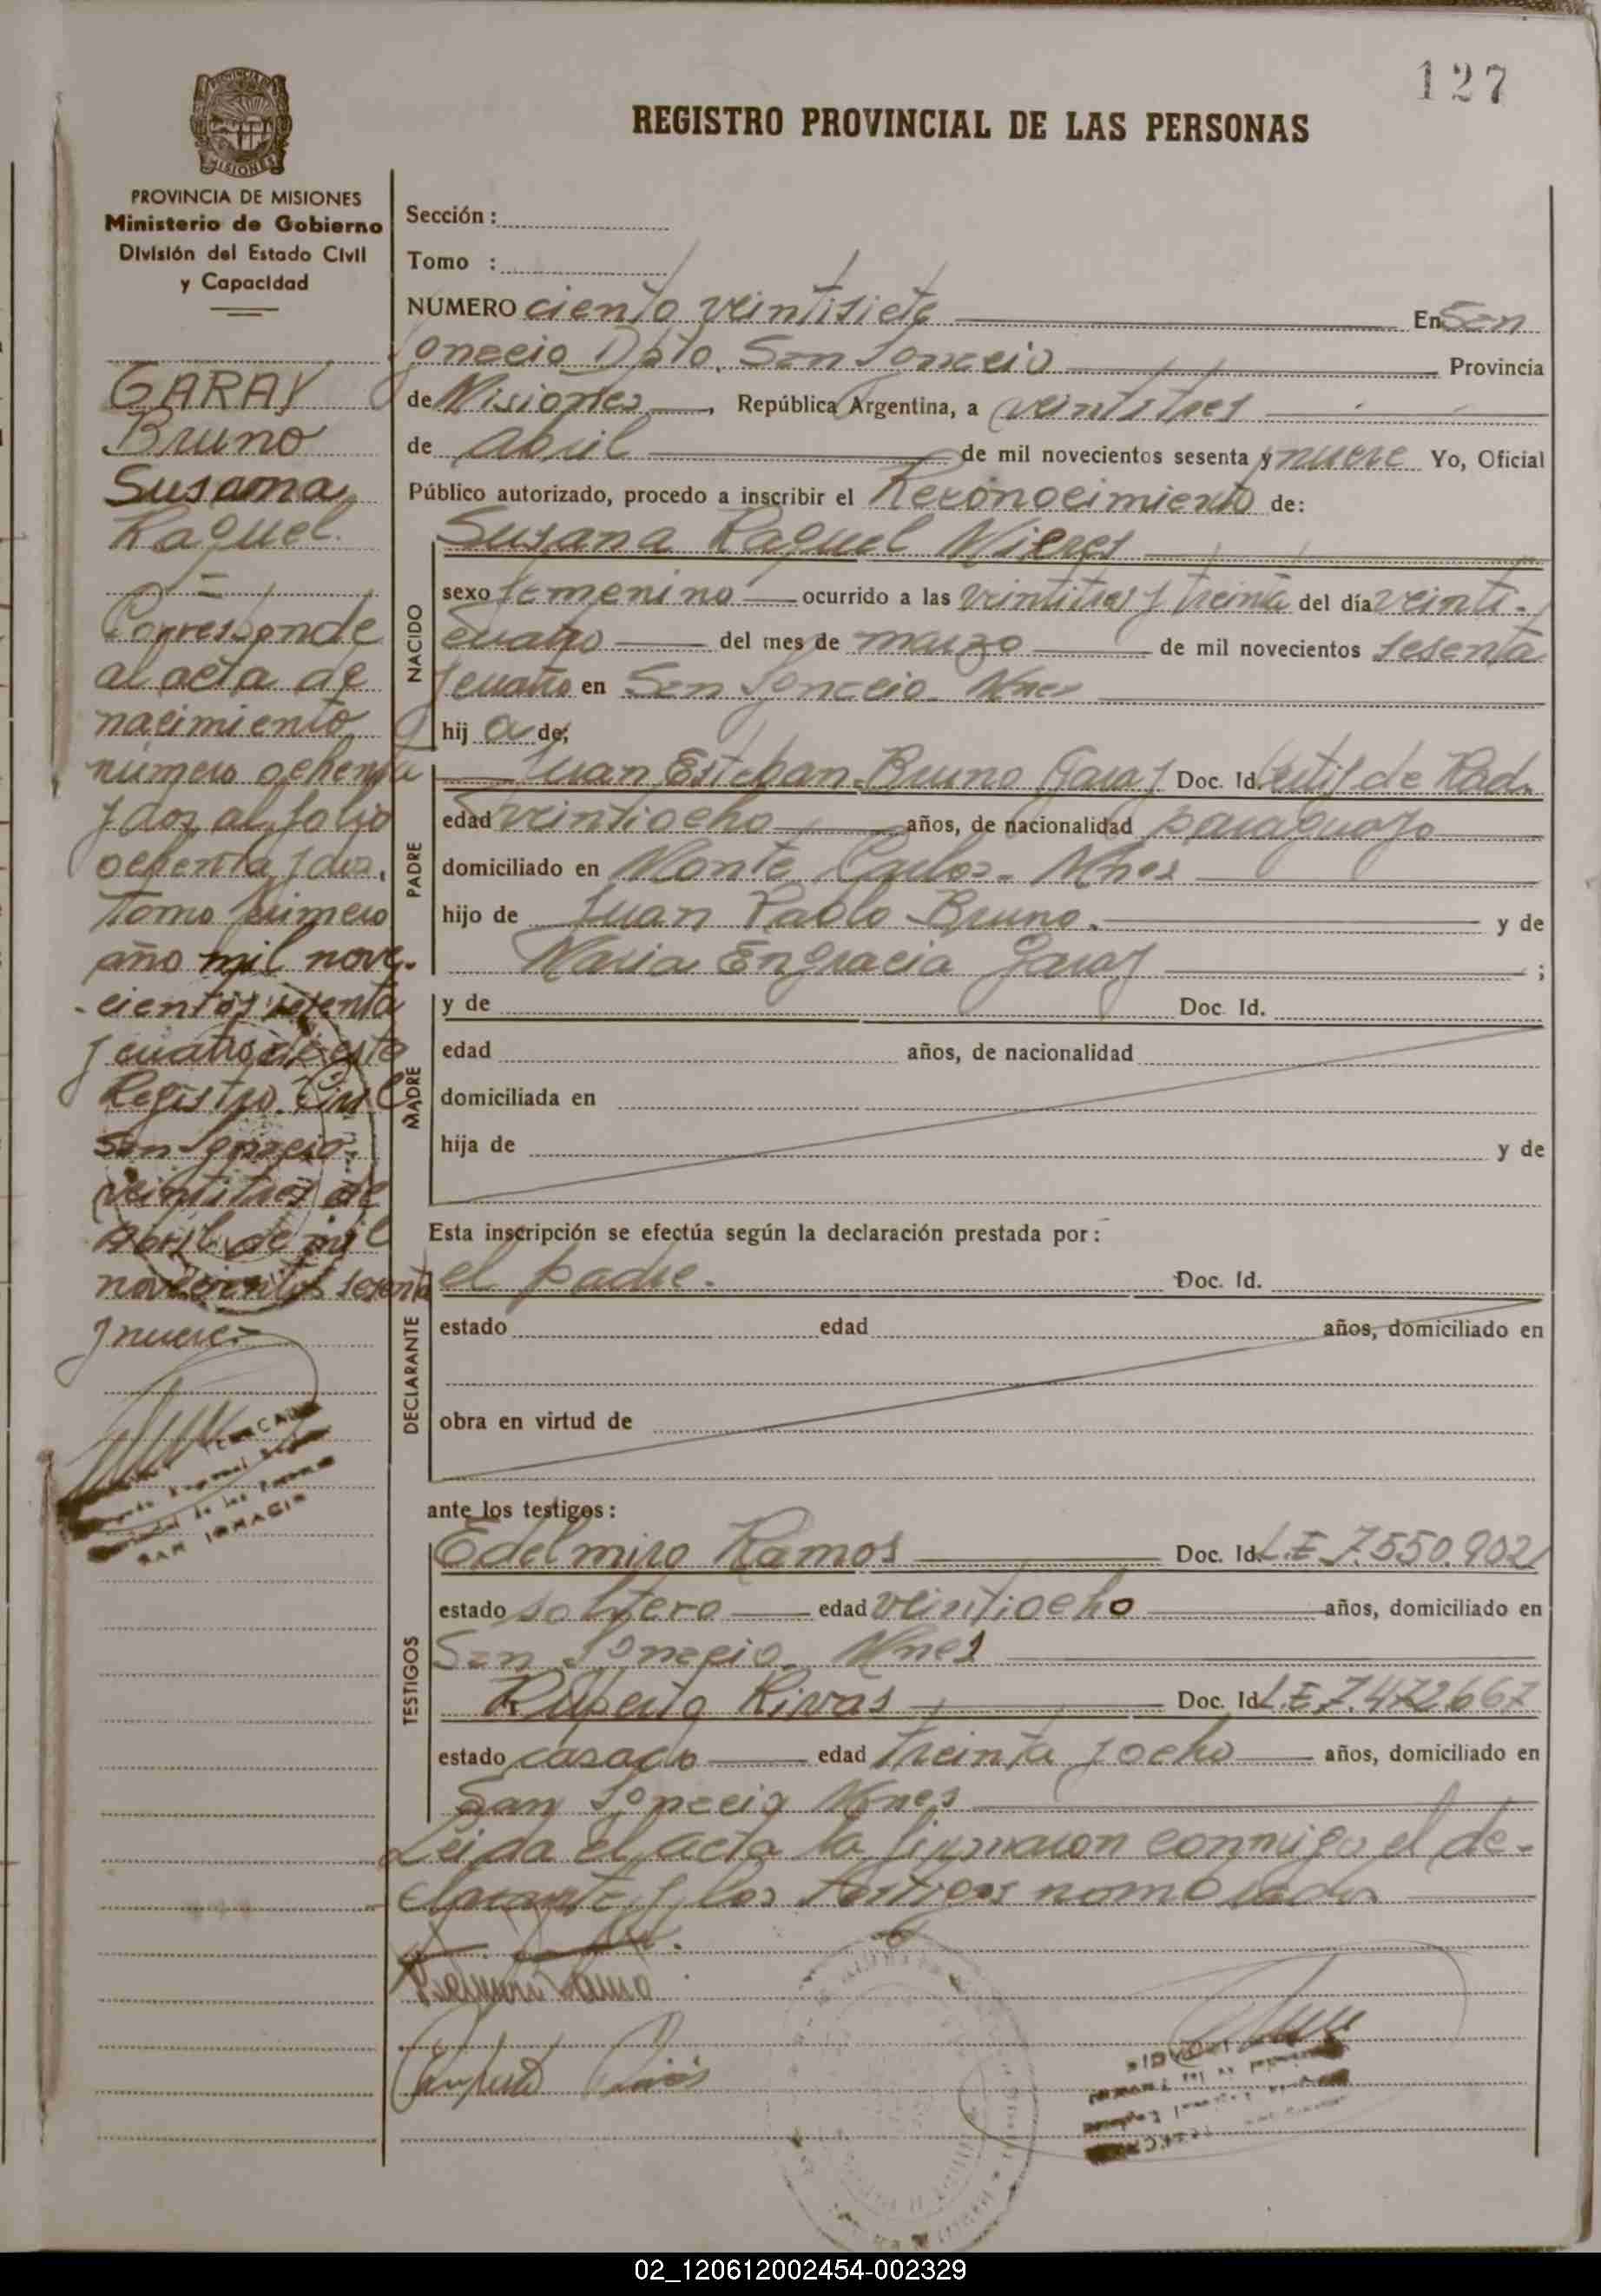 127
REGISTRO PROVINCIAL DE LAS PERSONAS
PROVINCIA DE MISIONES
MISIONES
Ministerio de Gobierno
División del Estado Civil
y Capacidad
GARAY
Bruno
Susana
Raquel
=
Corresponde
al acta de
nacimiento
número ochenta
y dos al folio
ochenta y dos.
Tomo primero
año mil nove-
cientos sesenta
y cuatro de este
Registro Civil
San Ignacio
veintitres de
Abril de mil
novecientos sesenta
y nueve.
SAN IGNACIO
Sección :
Tomo :
NUMERO ciento veintisiete En San
Ignacio Dpto. San Ignacio Provincia
de Misiones, República Argentina, a veintitres
de abril de mil novecientos sesenta y nueve Yo, Oficial
Público autorizado, procedo a inscribir el Reconocimiento de:
NACIDO
Susana Raquel Nieres
sexo femenino ocurrido a las veintitres y treinta del día veinti-
cuatro del mes de marzo de mil novecientos sesenta
y cuatro en San Ignacio Mnes
hij a de;
PADRE
Juan Esteban Bruno Garay Doc. Id. de Rad.
edad veintiocho años, de nacionalidad paraguayo
domiciliado en Monte Carlos - Mnes
hijo de Juan Pablo Bruno. y de
Maria Engracia Garay ;
MADRE
y de Doc. Id.
edad años, de nacionalidad
domiciliada en
hija de y de
Esta inscripción se efectúa según la declaración prestada por :
DECLARANTE
el padre. Doc. Id.
estado edad años, domiciliado en
obra en virtud de
ante los testigos :
TESTIGOS
Edelmiro Ramos Doc. Id. L.E 7.550.902
estado soltero edad veintiocho años, domiciliado en
San Ignacio Mnes
Ruperto Rivas Doc. Id. L.E 7.472.667
estado casado edad treinta y ocho años, domiciliado en
San Ignacio Mnes
Leida el acta la firmaron conmigo el de-
clarante y los testigos nombrados
02_120612002454-002329